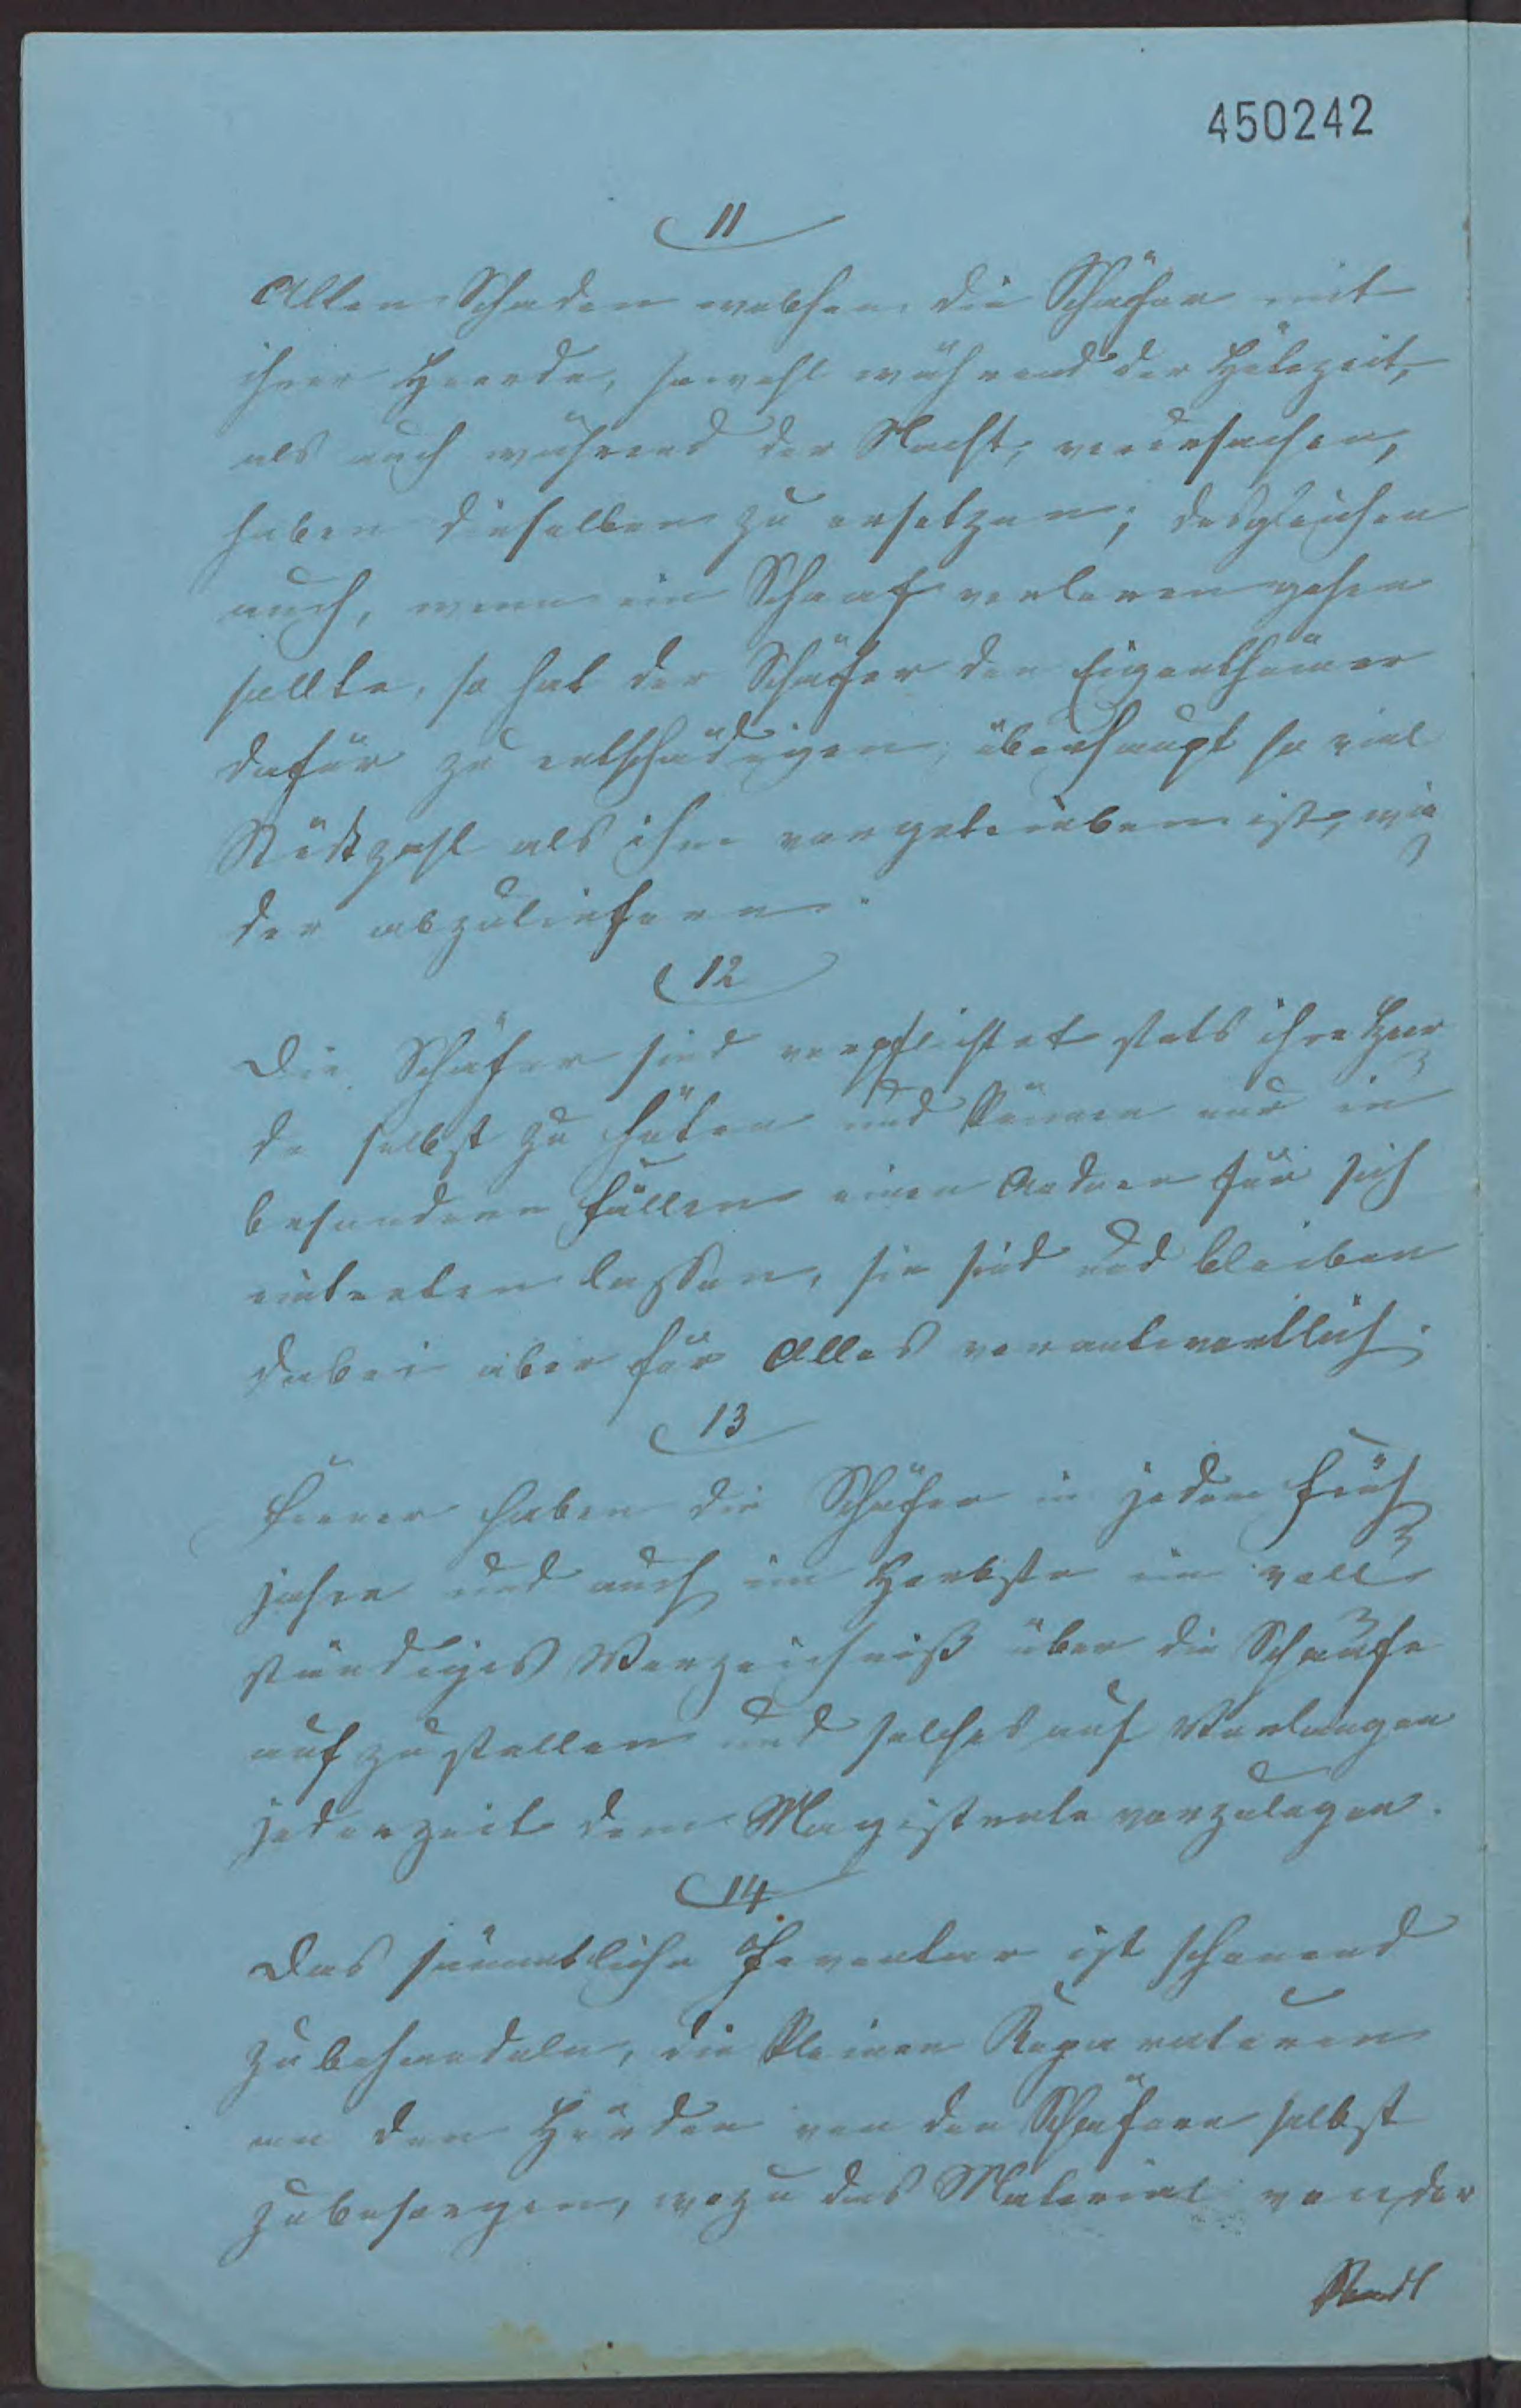 450242
11
Allen Schaden welchen die Schäfer mit
ihrer Heerde, sowohl während der Hütezeit,
als auch während der Nacht, verursachen,
haben dieselben zu ersetzen; desgleichen
auch, wenn ein Schaaf verloren gehen
sollte, so hat der Schäfer den Eigenthümer
dafür zu entschädigen, überhaupt so viel
Stückzahl als ihm vorgetrieben ist, wie
der abzuliefern.
12
Die Schäfer sind verpflichtet stets ihre Heer
de selbst zu hüten und können nur in
besondern Fällen einen Andern für sich
eintreten lassen, sie sind und bleiben
dabei aber für Alles verantwortlich.
13
Ferner haben die Schäfer in jedem Früh
jahre und auch im Herbste ein voll
ständiges Verzeichniß über die Schaafe
aufzustellen und solches auf Verlangen
jederzeit dem Magistrate vorzulegen.
14
Das sämmtliche Inventar ist schonend
zu behandeln, die kleinen Reparaturen
an den Hürden von den Schäfern selbst
zu besorgen, wozu das Material von der
Stadt